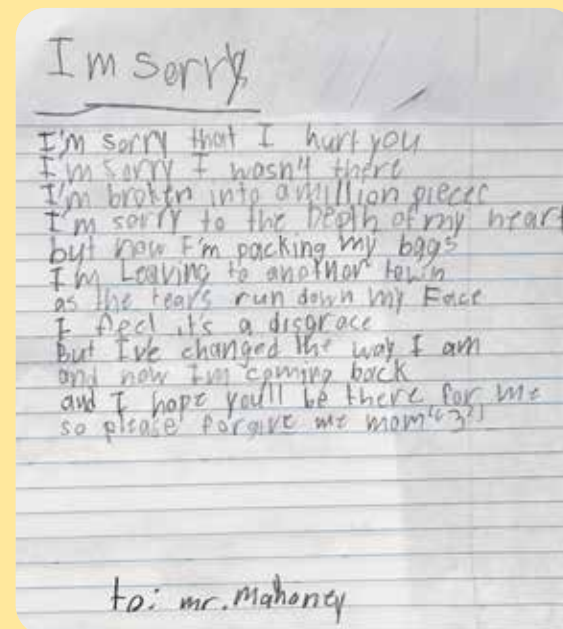 Im sorry
I'm sorry that I hurt you
I'm sorry I wasn't there
I'm broken into a million pieces
I'm sorry to the Depth of my heart
but now I'm packing my bags
I'm Leaving to another town
as the tears run down my Face
I feel it's a disgrace
But I've changed the way I am
and now I'm coming back
and I hope you'll be there for me
so please forgive me mom
to: mr. mahoney